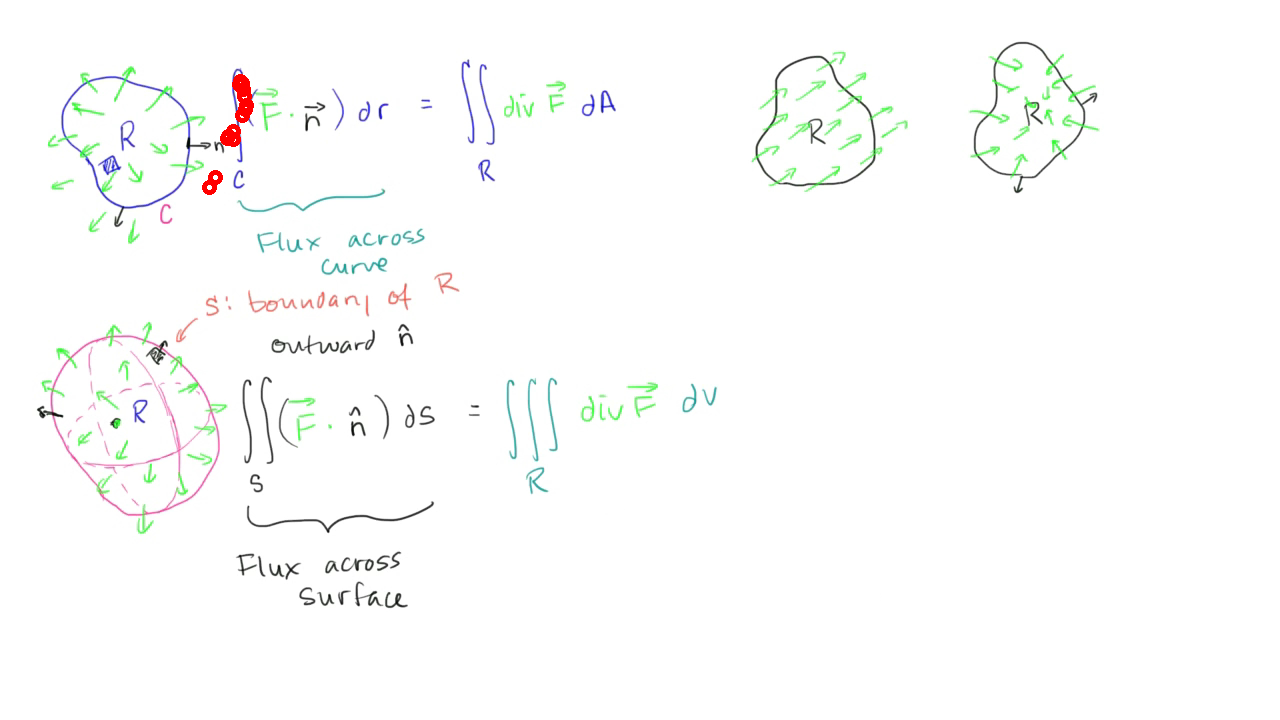 R
n
C
∫ (F⃗ · n⃗) dr = ∬ div F⃗ dA
C
R
Flux across
curve
S: boundary of R
outward n̂
R
∬ (F⃗ · n̂) dS = ∭ div F⃗ dV
S
R
Flux across
surface
R
R